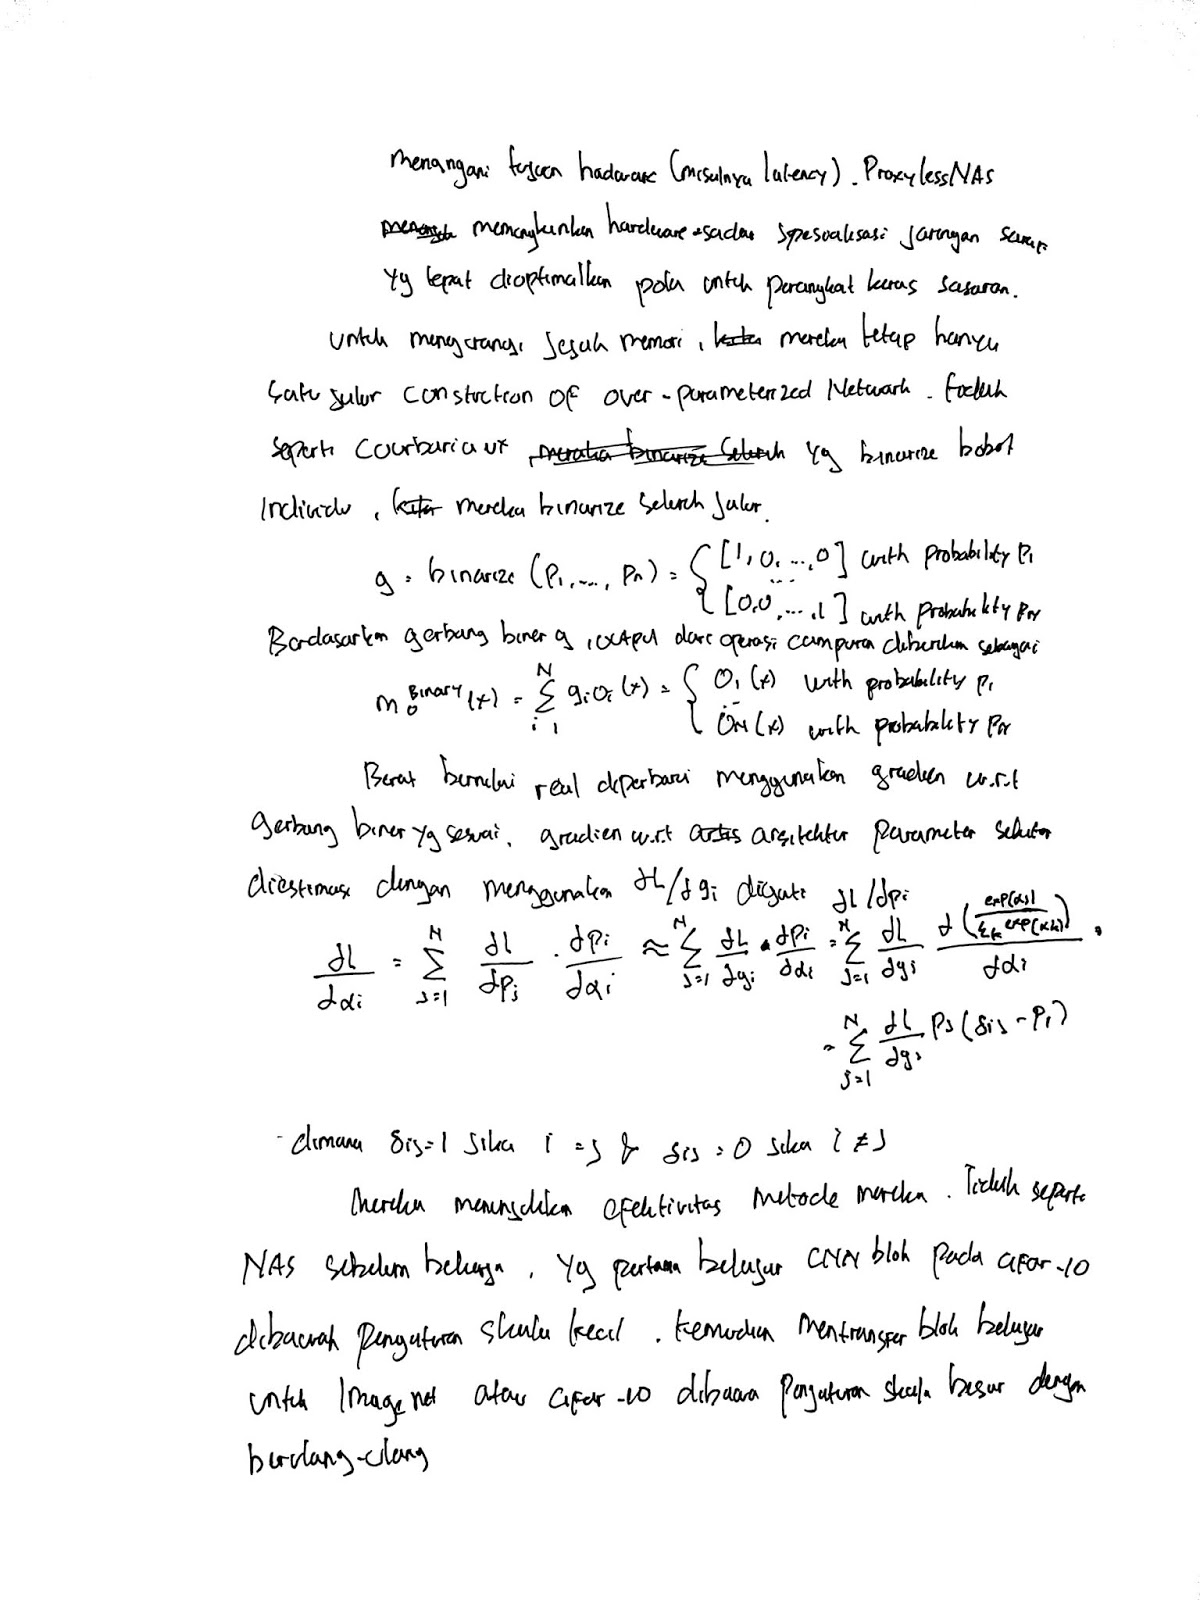 menangani tujuan hadware (misalnya latency). ProxylessNAS
memungkinkan hardware-sadar spesialisasi jaringan saraf
yg tepat dioptimalkan pola untuk perangkat keras sasaran.
untuk mengurangi jejak memori, mereka tetap hanya
satu jalur construction of over-parameterized Network. tidak
seperti Courbariaux yg binarize bobot
individu, mereka binarize seluruh jalur.
g = binarize (p1, ..., pn) = { [1, 0, ..., 0] with probability p1
...
[0,0, ..., 1] with probability pN
Berdasarkan gerbang biner g, output dari operasi campuran diberikan sebagai
m_o^Binary (x) = Σ_{i=1}^{N} g_i o_i (x) = { o_1 (x) with probability p1
...
o_N (x) with probability pN
Berat bernilai real diperbarui menggunakan gradien w.r.t
gerbang biner yg sesuai. gradien w.r.t arsitektur parameter sekitar
diestimasi dengan menggunakan ∂L/∂gi diganti ∂L/∂pi
∂L/∂αi = Σ_{j=1}^{N} ∂L/∂pj · ∂pi/∂αi ≈ Σ_{j=1}^{N} ∂L/∂gi · ∂pi/∂αi = Σ_{j=1}^{N} ∂L/∂gj ∂(exp(αj)/Σ_k exp(αk))/∂αi
= Σ_{j=1}^{N} ∂L/∂gj pj (δij - pi)
- dimana δij = 1 jika i = j & δij = 0 jika i ≠ j
Mereka menunjukkan efektivitas metode mereka. Tidak seperti
NAS sebelum bekerja, yg pertama belajar CNN blok pada CIFAR-10
dibawah pengaturan skala kecil. kemudian mentransfer blok belajar
untuk Imagenet atau CIFAR-10 dibawa pengaturan skala besar dengan
berulang-ulang